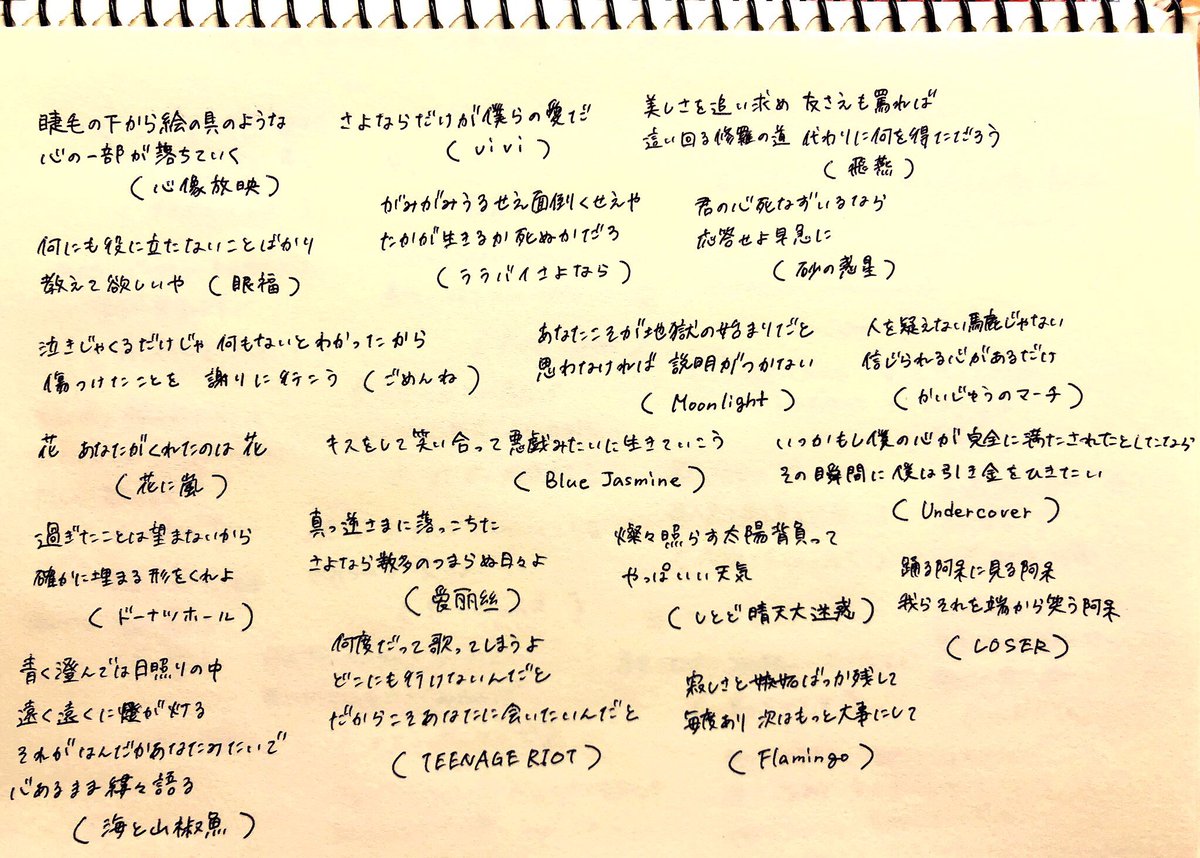 睫毛の下から絵の具のような
心の一部が落ちていく
(心像放映)
さよならだけが僕らの愛だ
(vivi)
美しさを追い求め 友さえも罵れば
這い回る修羅の道 代わりに何を得ただろう
(飛燕)
何にも役に立たないことばかり
教えて欲しいや (眼福)
がみがみうるせえ面倒くせえや
たかが生きるか死ぬかだろ
(ララバイさよなら)
君の心死なずいるなら
応答せよ早急に
(砂の惑星)
泣きじゃくるだけじゃ 何もないとわかったから
傷つけたことを 謝りに行こう (ごめんね)
あなたこそが地獄の始まりだと
思わなければ 説明がつかない
(Moonlight)
人を疑えない馬鹿じゃない
信じられる心があるだけ
(かいじゅうのマーチ)
花 あなたがくれたのは 花
(花に嵐)
キスをして笑い合って悪戯みたいに生きていこう
(Blue Jasmine)
いつかもし僕の心が 完全に満たされたとしたなら
その瞬間に僕は引き金をひきたい
(Undercover)
過ぎたことは望まないから
確かに埋まる形をくれよ
(ドーナツホール)
真っ逆さまに落っこちた
さよなら数多のつまらぬ日々よ
(愛丽丝)
燦々照らす太陽背負って
やっぱいい天気
(しとど晴天大迷惑)
踊る阿呆に見る阿呆
我らそれを端から笑う阿呆
(LOSER)
青く澄んでは日照りの中
遠く遠くに燈が灯る
それがなんだかあなたみたいで
心あるまま縷々語る
(海と山椒魚)
何度だって歌ってしまうよ
どこにも行けないんだと
だからこそあなたに会いたいんだと
(TEENAGE RIOT)
寂しさと嫉妬ばっか残して
毎度あり 次はもっと大事にして
(Flamingo)